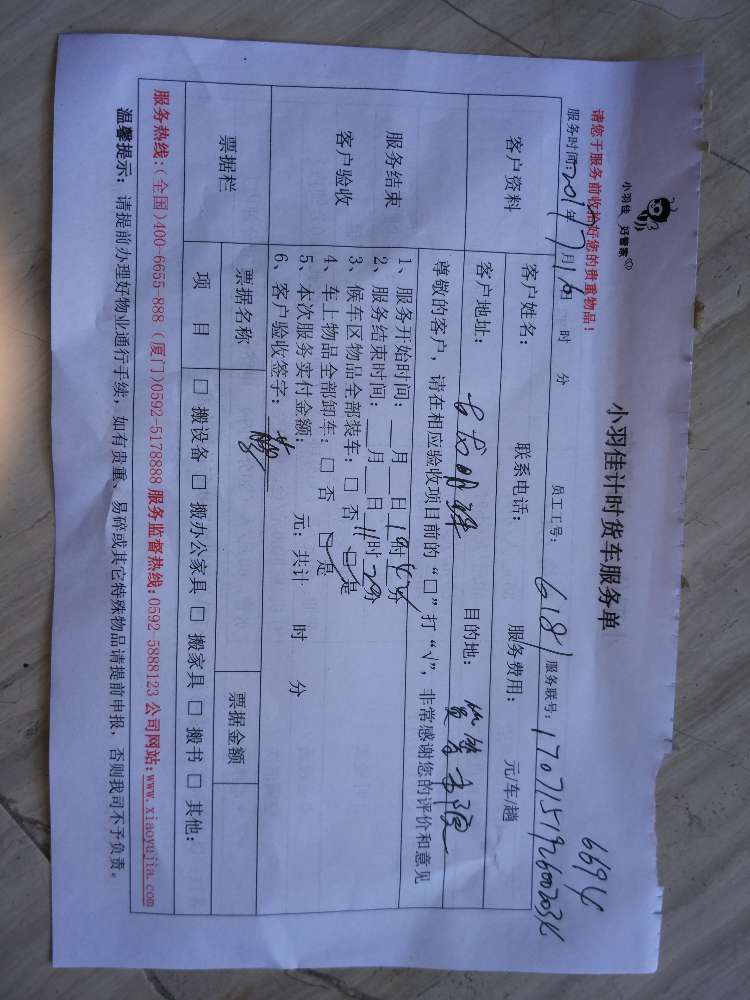 小羽佳 好管家
6694
小羽佳计时货车服务单
请您于服务前收拾好您的贵重物品！
服务时间:2017年7月16日 时 分 员工工号: 6181 服务联号:
客户资料 客户姓名: 联系电话: 服务费用: 元/车/趟
客户地址: 目的地:
尊敬的客户，请在相应验收项目前的“□”打“√”，非常感谢您的评价和意见
服务结束
客户验收
1、服务开始时间: __月__日 时 分
2、服务结束时间: __月__日11时 分
3、候车区物品全部装车: □ 否 □ 是
4、车上物品全部卸车: □ 否 □ 是
5、本次服务实付金额: 元; 共计 时 分
6、客户验收签字:
票据栏 票据名称 票据金额
项 目 □ 搬设备 □ 搬办公家具 □ 搬家具 □ 搬书 □ 其他:
服务热线:(全国)400-6655-888 (厦门)0592-5178888 服务监督热线:0592-5888123 公司网站:www.xiaoyujia.com
温馨提示: 请提前办理好物业通行手续，如有贵重、易碎或其它特殊物品请提前申报，否则我司不予负责。